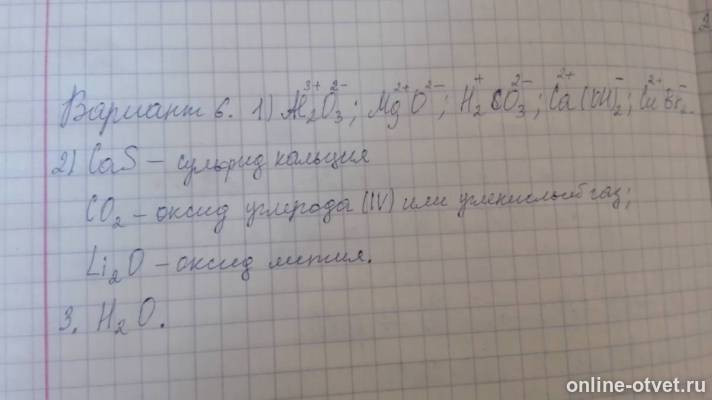 Вариант 6. 1) Al₂³⁺O₃²⁻; Mg²⁺O²⁻; H₂⁺SO₃²⁻; Ca²⁺(OH)₂⁻; Cu²⁺Br₂⁻.
2) CaS – сульфид кальция
CO₂ – оксид углерода (IV) или углекислый газ;
Li₂O – оксид лития.
3. H₂O.
online-otvet.ru